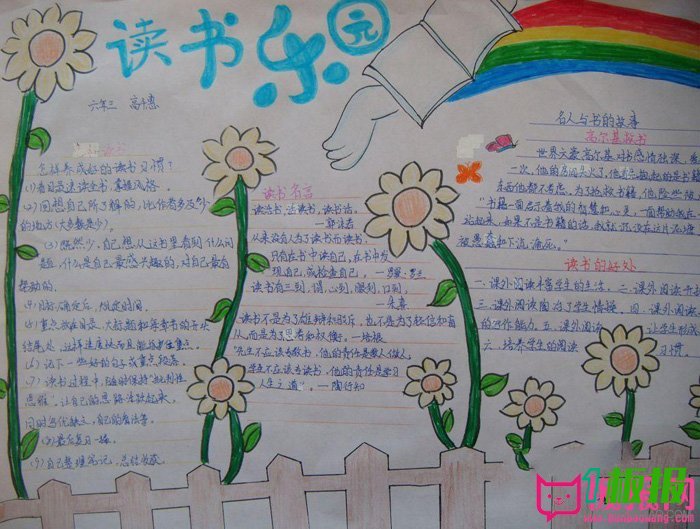 读书乐园
六年三 高千惠
怎样养成好的读书习惯?
(1)看
(2)回想自己所了解的,比作者多或少
的地方(大多数是少)。
(3)既然少,自己想从这书里看到什么问
题,什么是自己最感兴趣的,对自己最有
帮助的。
(4)目标确定后,规定时间。
(5)重点放在目录、大标题和每章节的开头
结尾处,这样速度快而且能抓住重点。
(6)记下一些好的句子或重点段落。
(7)读书过程中,随时保持"批判性
思维",让自己的思路活跃起来,
同时写优缺点,自己的看法等。
(8)最后复习一遍。
(9)自己整理笔记,总结收获。
读书名言
读活书,活读书,读书活。
—郭沫若
从来没有人为了读书而读书,
只有在书中读自己,在书中发
现自己,或检查自己。—罗曼·罗兰
读书有三到,谓心到,眼到,口到。
—朱熹
读书不是为了雄辩和驳斥,也不是为了轻信和盲
从,而是为了思考和权衡。—培根
"先生不应该专教书,他的责任是教人做人,
学生不应该专读书,他的责任是学习
人生之道"。—陶行知
名人与书的故事
高尔基救书
世界文豪高尔基对书感情独深,
一次,他的房间失火了,他首先抱起的是书籍,
在恶他都不考虑。为了抢救书籍,他险些
"书籍一面启示着我的智慧和心灵,一面帮助我
站起来,如果不是书籍的话,我就沉没在这片泥塘
被愚蠢和下流淹死。"
读书的好处
一.课外阅读丰富学生的生活。二.课外阅读开
三.课外阅读陶冶了学生情操。四.课外阅读
的写作能力。五.课外阅读 让学生形成
六.培养学生的阅读 习惯。
板报网